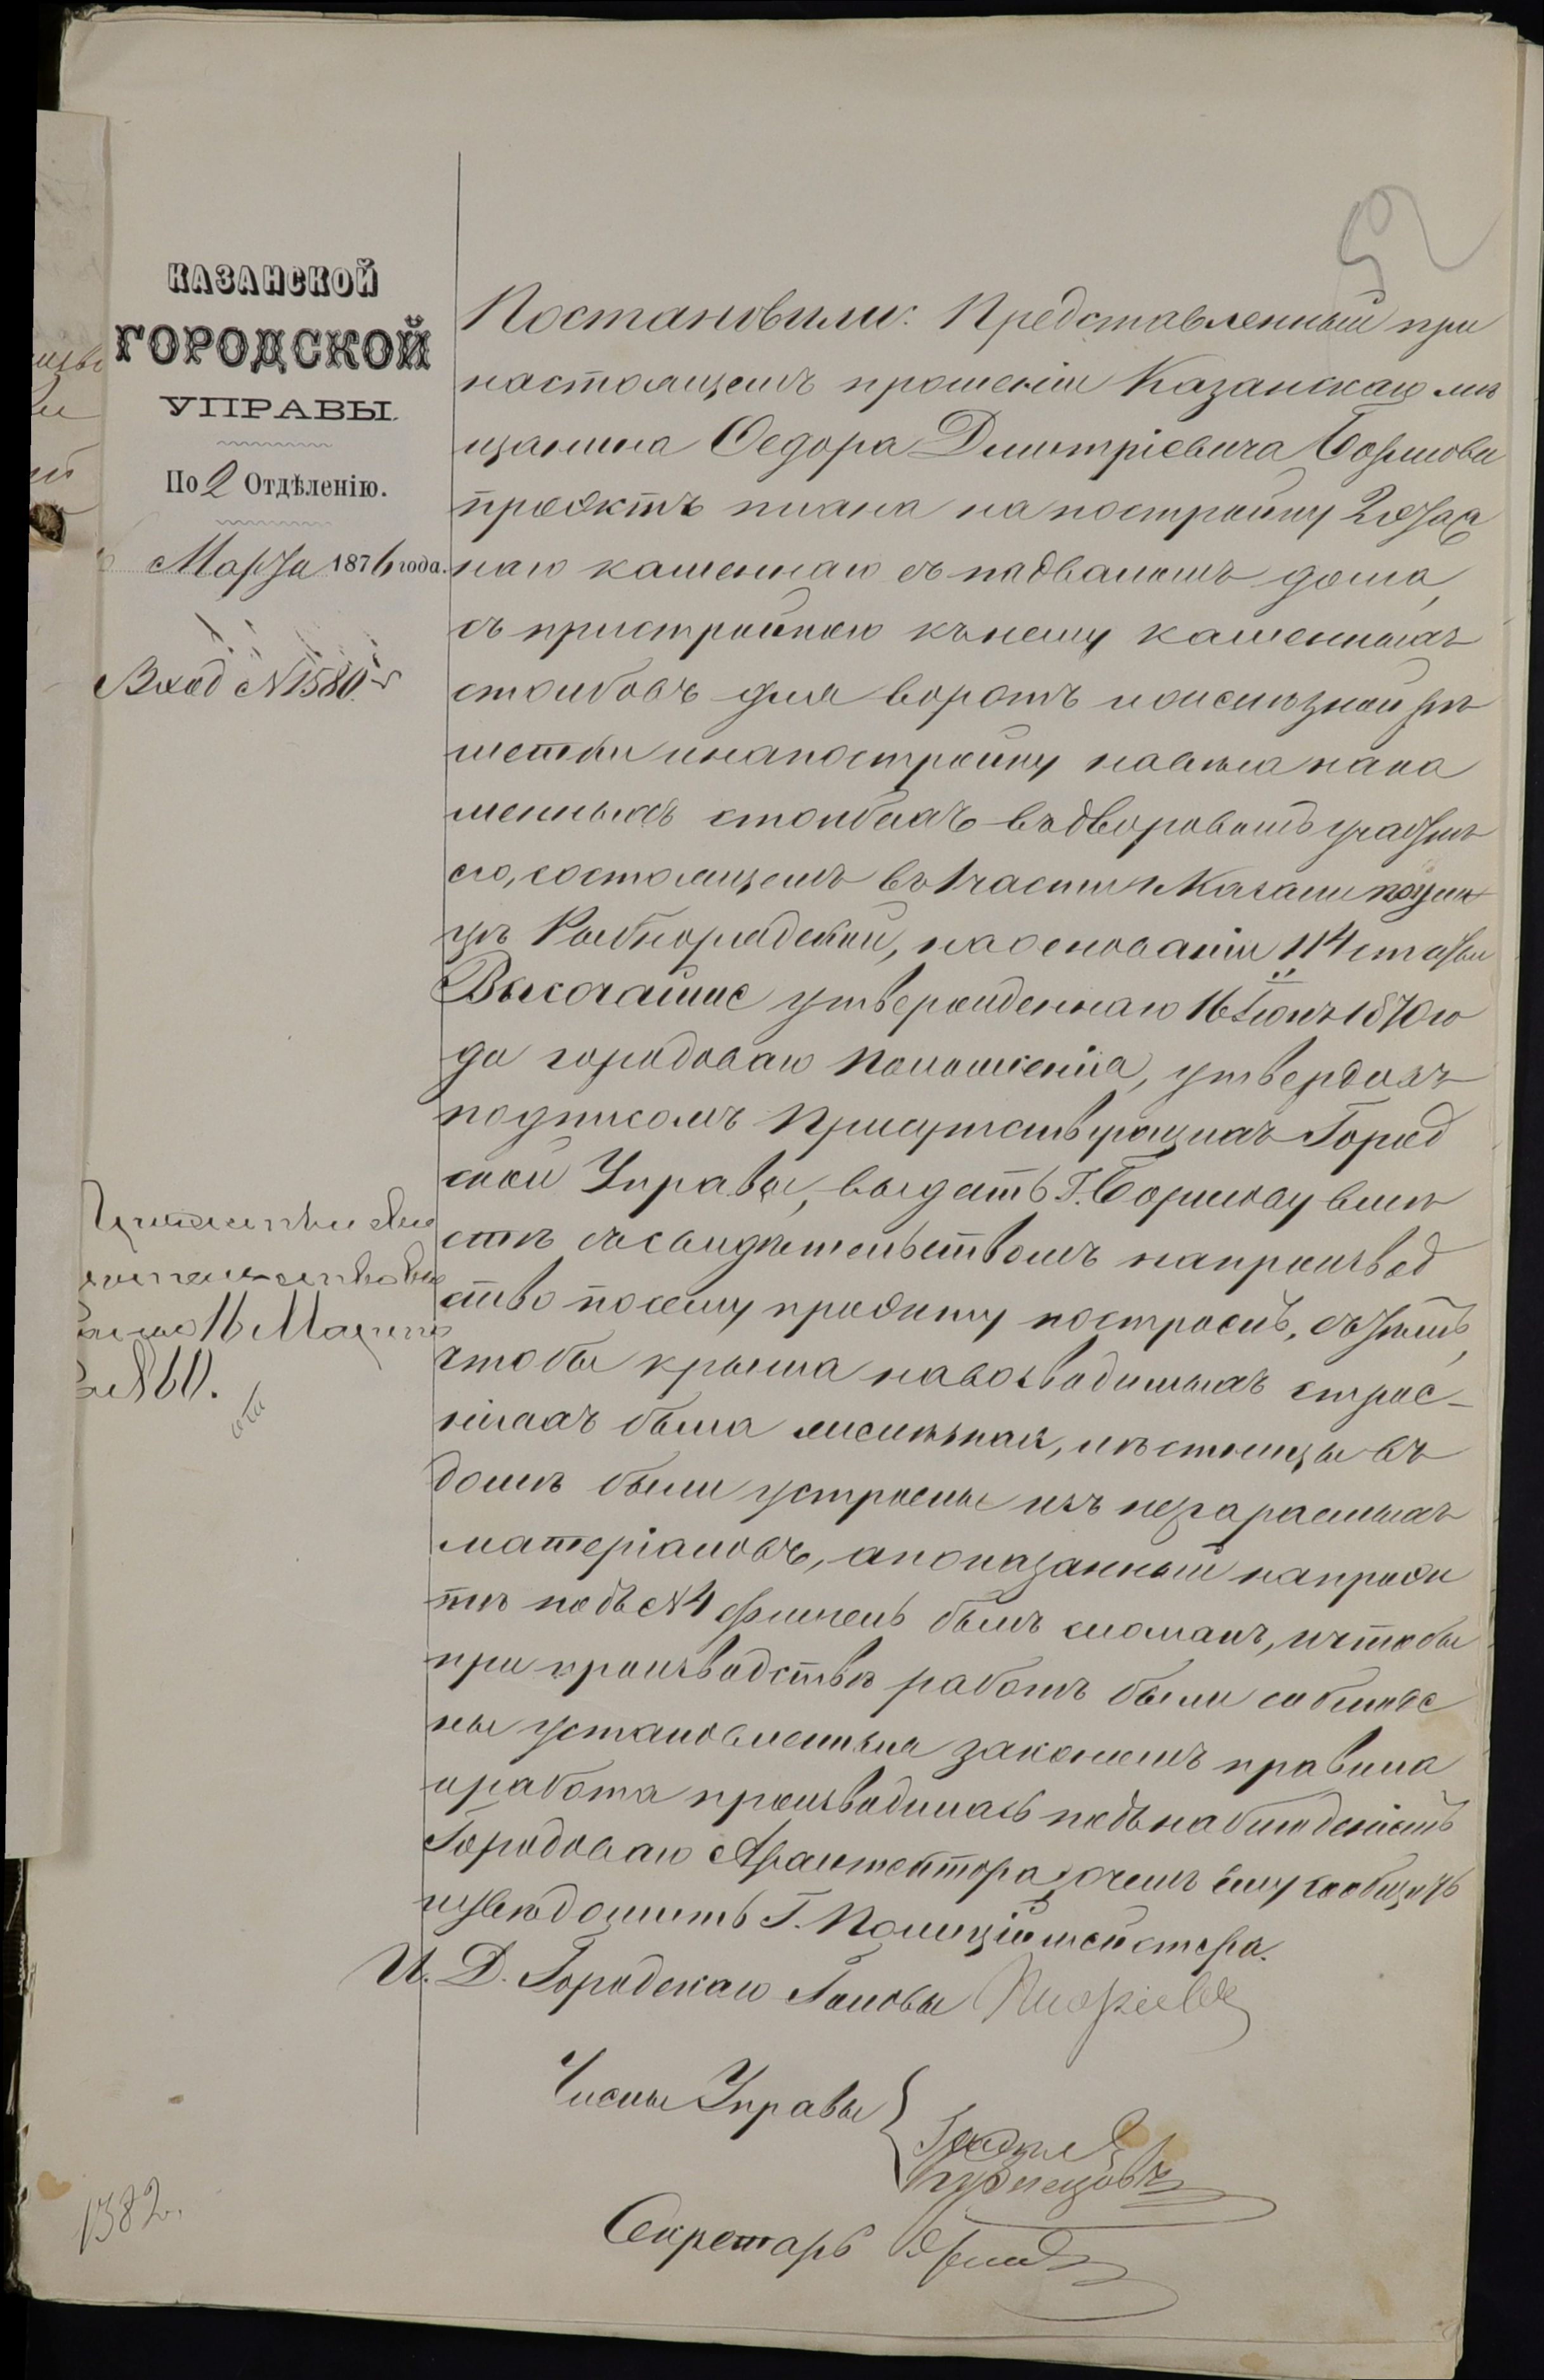 52
КАЗАНСКОЙ
ГОРОДСКОЙ
УПРАВЫ.
По 2 Отдѣленію.
Марта 1876 года.
Вход № 1580
16 Марта
№ 60.
1382.
Постановили: Представленный при
настоящемъ прошеніи Казанскаго мѣ
щанина Ѳедора Дмитріевича
проэктъ плана на постройку 2 этаж
наго каменнаго съ подваломъ дома,
съ пристройкою къ нему каменныхъ
столбовъ для воротъ и желѣзной рѣ
шетки и на постройку навѣса на ка
менныхъ столбахъ въ дворовомъ участкѣ
его, состоящемъ въ 1 части г. Казани по ули
цѣ Рыбнорядской, на основаніи 114 статьи
Высочайше утвержденнаго 16 Іюня 1870 го
да городоваго Положенія, утвердивъ
подписомъ Присутствующихъ Город
ской Управы, выдать Г. вмѣ
стѣ съ свидѣтельствомъ на производ
ство по сему проэкту построекъ, съ тѣмъ,
чтобы крыша на возводимыхъ строе-
ніяхъ была желѣзная, лѣстницы въ
домѣ были устроены изъ несгараемыхъ
матеріаловъ, а показанный на проэк
тѣ подъ № 4 флигель былъ сломанъ, и чтобы
при производствѣ работъ были соблюде
ны установленныя закономъ правила
и работа производилась подъ наблюденіемъ
Городоваго Архитектора, о чемъ ему сообщить
и увѣдомить Г. Полиціймейстера.
И. Д. Городскаго Головы
Члены Управы
Кузнецовъ
Секретарь